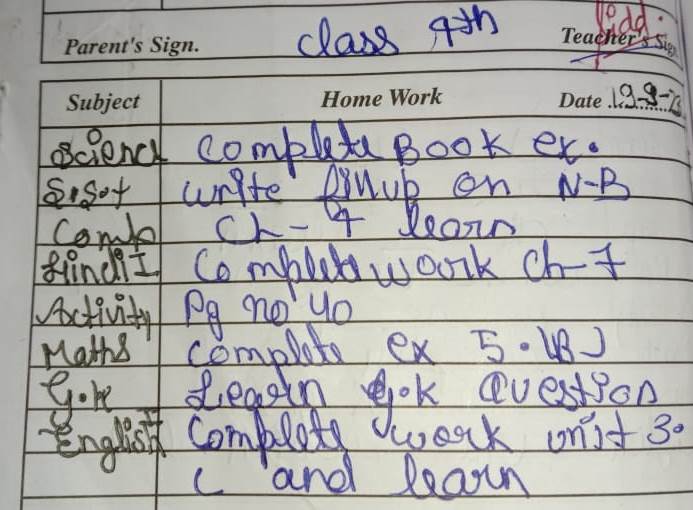 Parent's Sign. class 4th Teacher's Sign
Subject Home Work Date 19-9-23
Science Complete Book ex.
S.St write fillup on N-B
Comp Ch-4 learn
Hindi I Complete woork Ch-7
Activity Pg no 40
Maths complete ex 5.(B)
G.k Learn G.k Question
English Complete work unit 3.
C and learn